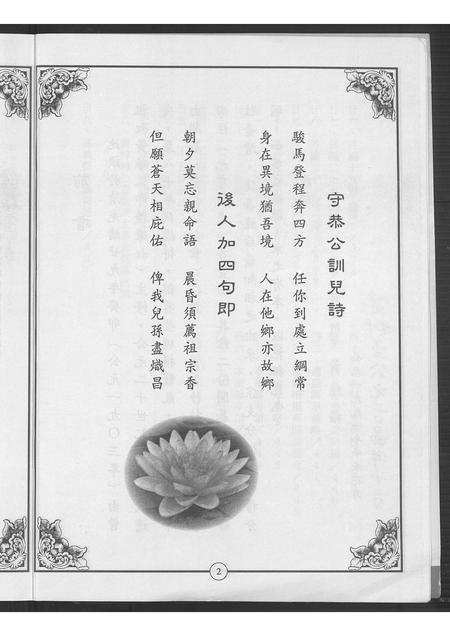 守恭公訓兒詩
駿馬登程奔四方 任你到處立綱常
身在異境猶吾境 人在他鄉亦故鄉
後人加四句即
朝夕莫忘親命語 晨昏須薦祖宗香
但願蒼天相庇佑 俾我兒孫盡熾昌
2